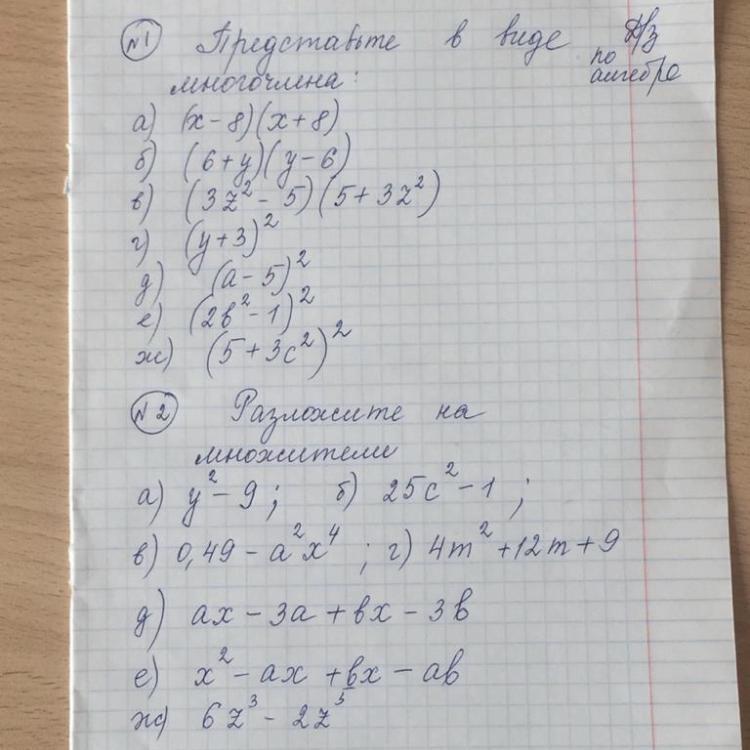 №1 Представьте в виде
многочлена:
Д/з
по
алгебре
а) (x - 8)(x + 8)
б) (6 + y)(y - 6)
в) (3z² - 5)(5 + 3z²)
г) (y + 3)²
д) (a - 5)²
е) (2b² - 1)²
ж) (5 + 3c²)²
№2 Разложите на
множители
а) y² - 9; б) 25c² - 1;
в) 0,49 - a²x⁴; г) 4m² + 12m + 9
д) ax - 3a + bx - 3b
е) x² - ax + bx - ab
ж) 6z³ - 2z⁵